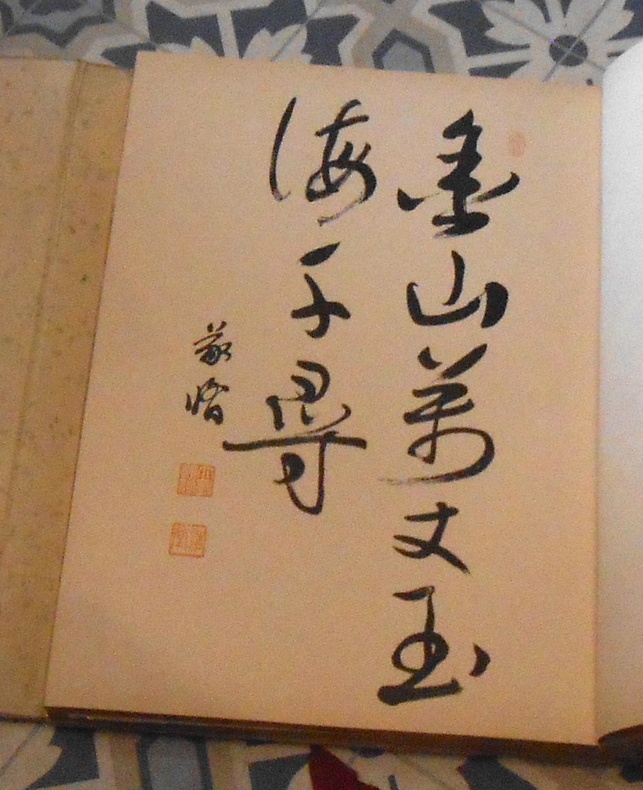 金山萬丈玉
海千尋